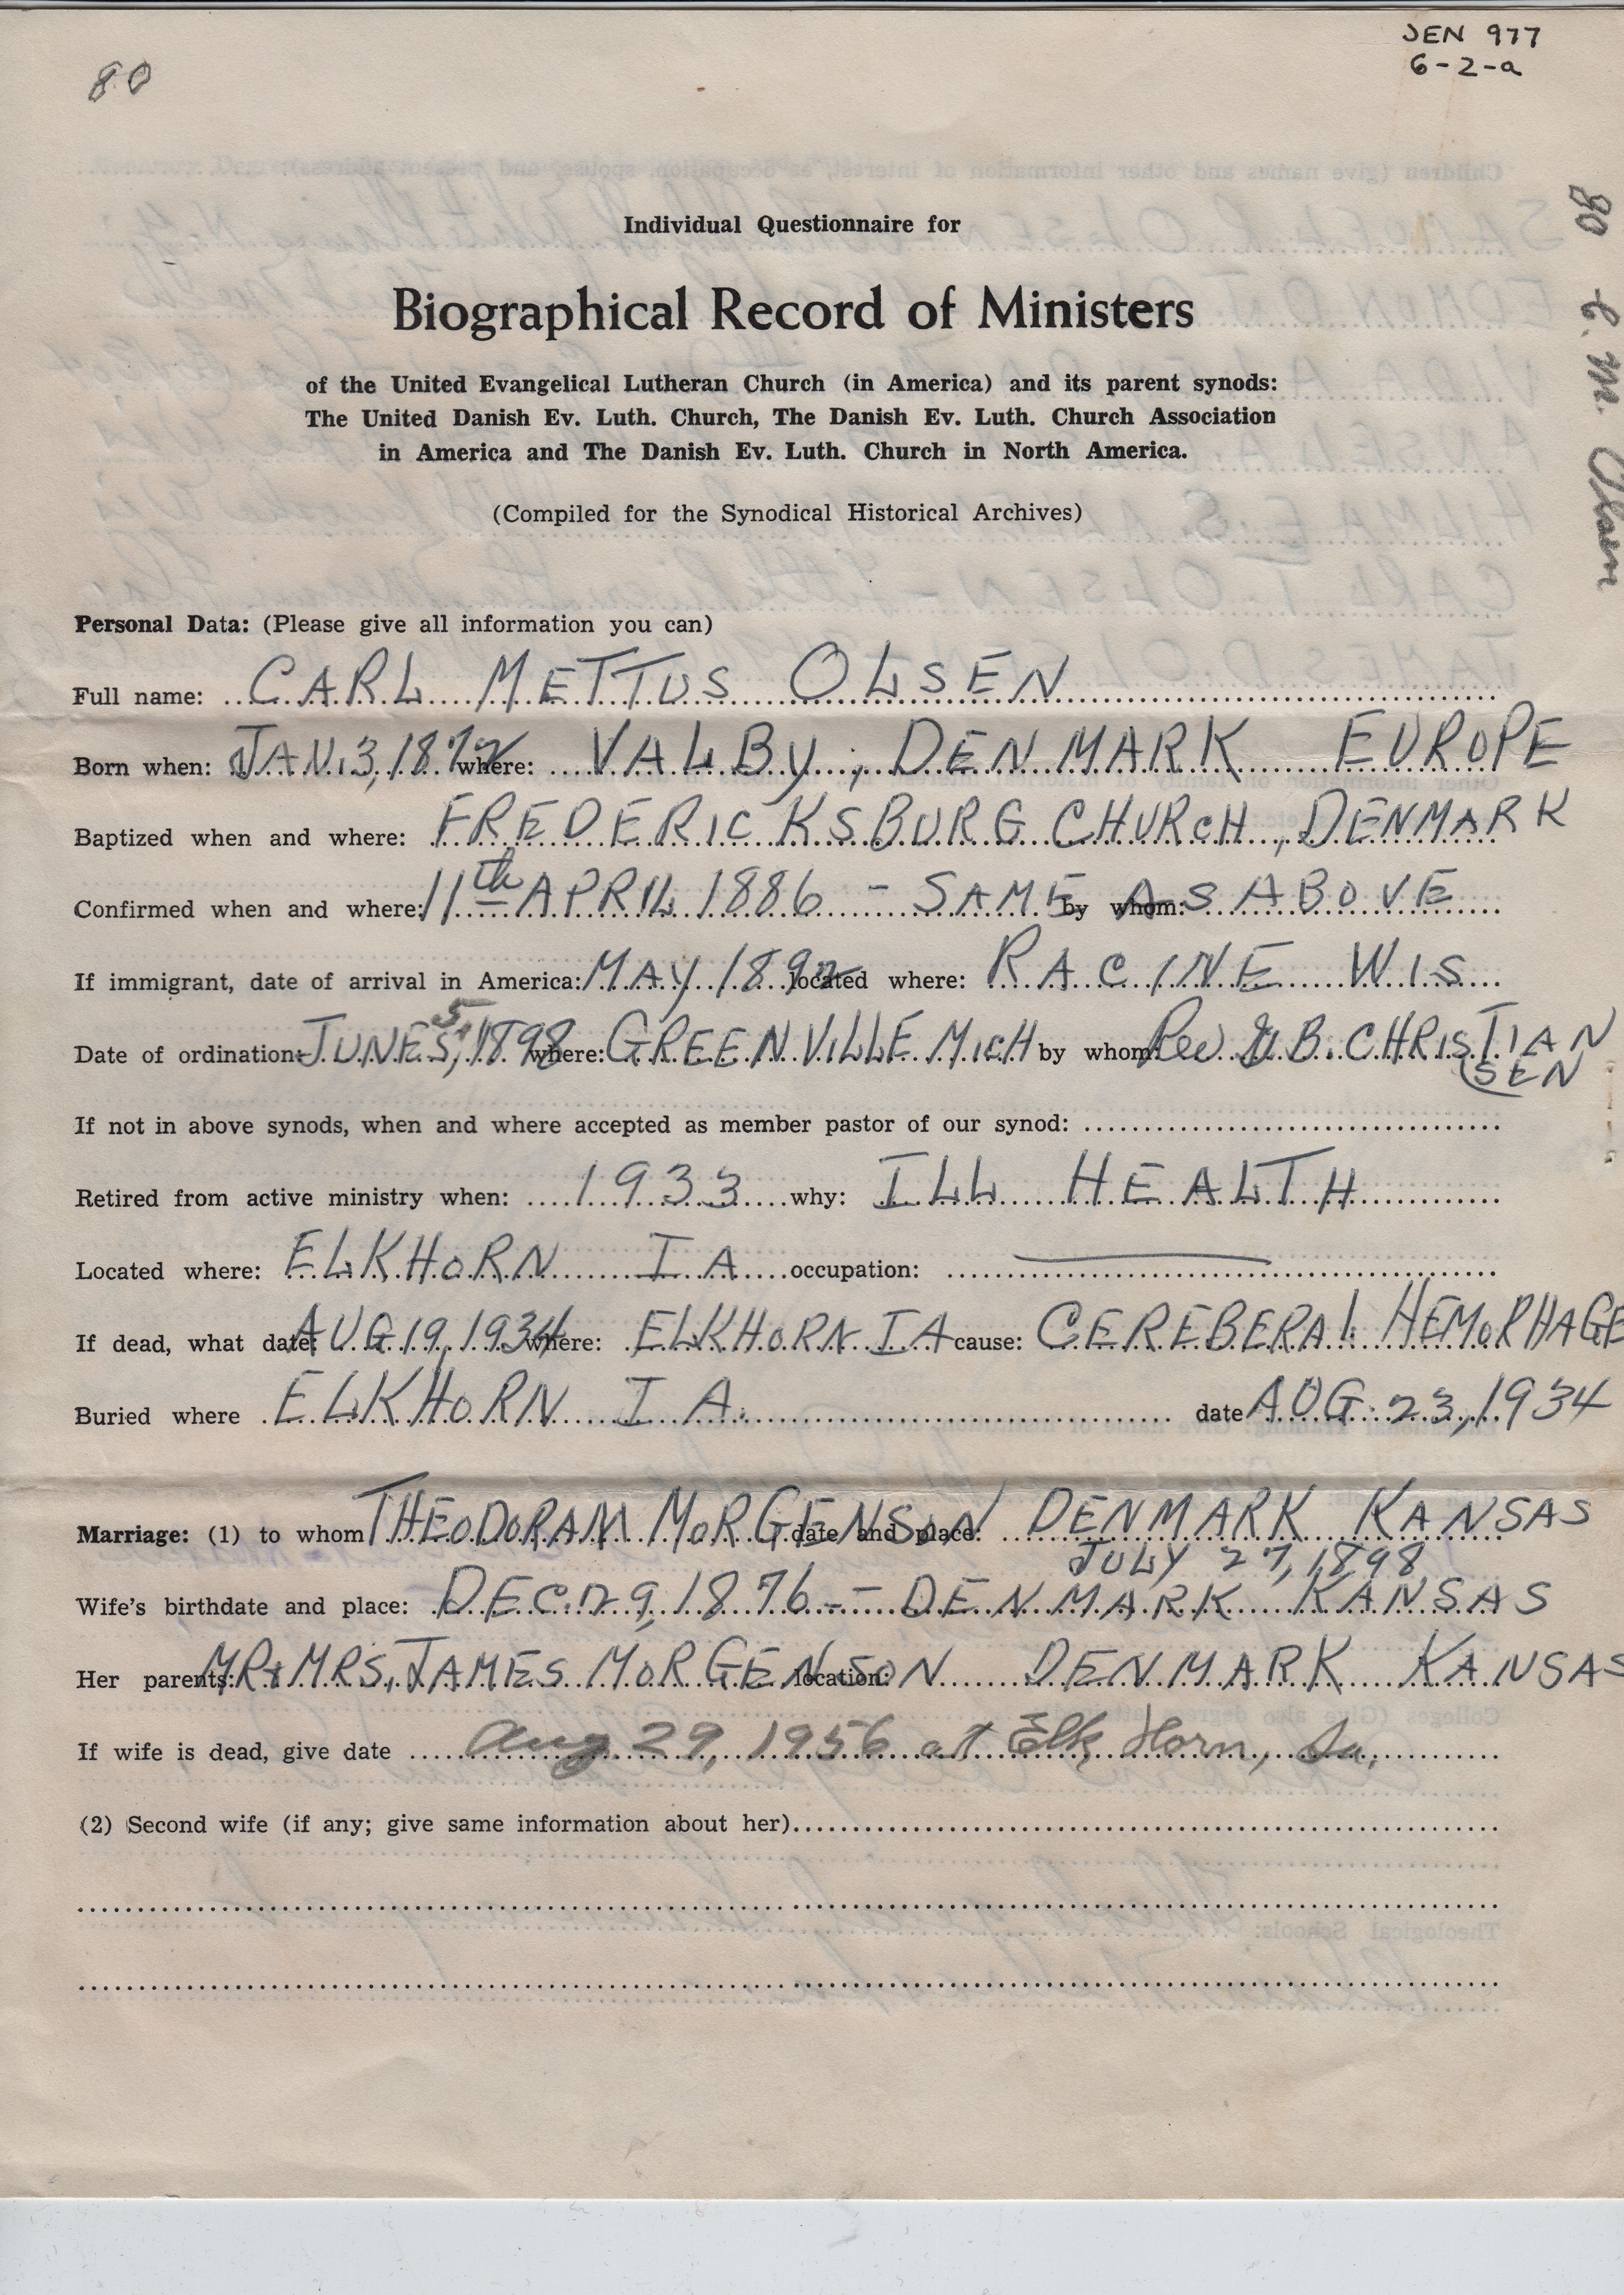 JEN 977
6-2-a
80
80 C. M. Olsen
Individual Questionnaire for
Biographical Record of Ministers
of the United Evangelical Lutheran Church (in America) and its parent synods:
The United Danish Ev. Luth. Church, The Danish Ev. Luth. Church Association
in America and The Danish Ev. Luth. Church in North America.
(Compiled for the Synodical Historical Archives)
Personal Data: (Please give all information you can)
Full name: CARL METTUS OLSEN
Born when: JAN. 3, 1872 where: VALBY, DENMARK EUROPE
Baptized when and where: FREDERICKSBURG CHURCH, DENMARK
Confirmed when and where: 11th APRIL 1886 - SAME AS ABOVE by whom:
If immigrant, date of arrival in America: MAY 1892 located where: RACINE WIS
5
Date of ordination: JUNE 5, 1898 where: GREENVILLE MICH by whom: Rev G. B. CHRISTIAN
SEN
If not in above synods, when and where accepted as member pastor of our synod:
Retired from active ministry when: 1933 why: ILL HEALTH
Located where: ELKHORN IA occupation: —
If dead, what date: AUG 19, 1934 where: ELKHORN IA cause: CEREBERAL HEMORHAGE
Buried where ELKHORN IA. date AUG. 23, 1934
Marriage: (1) to whom THEODORA M MORGENSON date and place: DENMARK KANSAS
JULY 27, 1898
Wife's birthdate and place: DEC. 29, 1876 - DENMARK KANSAS
Her parents: MR & MRS. JAMES MORGENSON location: DENMARK KANSAS
If wife is dead, give date Aug 29, 1956 at Elk Horn, Ia.
(2) Second wife (if any; give same information about her)